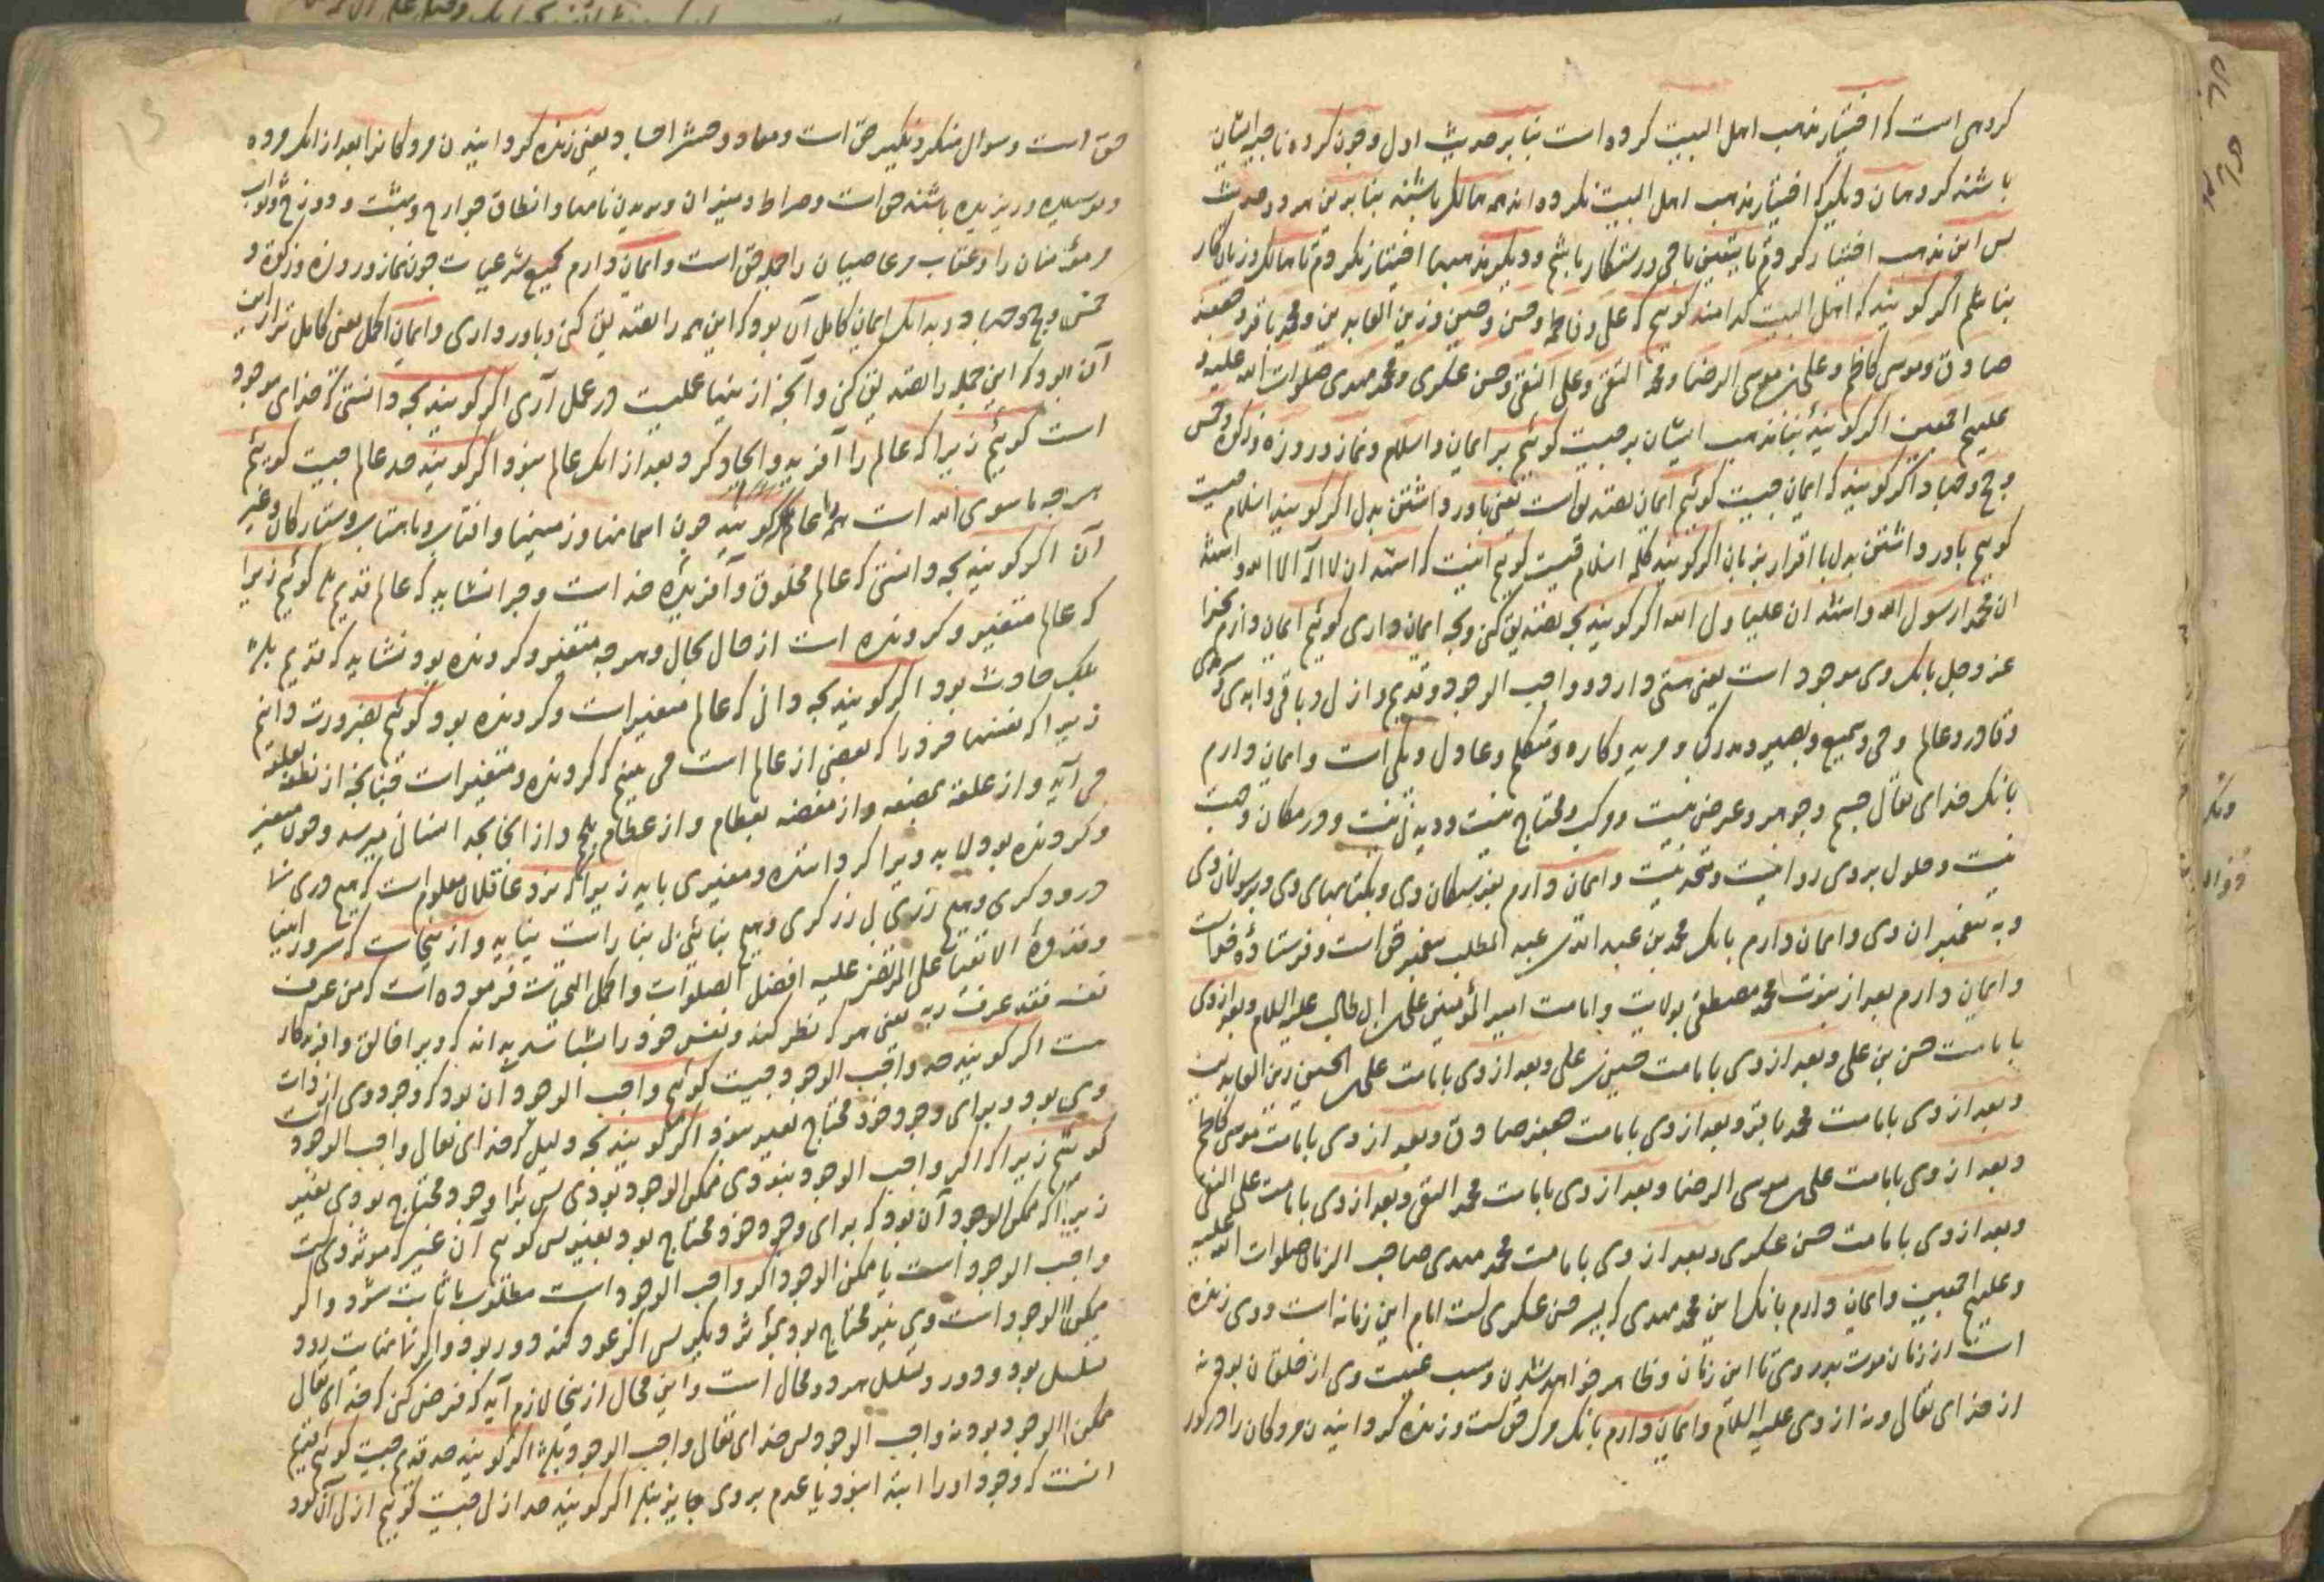 گروهی است که اختیار مذهب اهل البیت کرده است بنا بر حدیث اول و چون گروه ناجیه ایشان
باشند گروهان دیگر که اختیار مذهب اهل البیت نکرده اند همه هالک باشند بنا برین هر دو حدیث
پس این مذهب اختیار کردم تا بیقین ناجی و رستکار باشم و دیکر مذهبها اختیار نکردم تا هالک و زیان کار
نباشم اگر کویند که اهل البیت کدامند کوییم که علی و فاطمه و حسن و حسین و زین العابدین و محمد باقر و جعفر
صادق و موسی کاظم و علی بن موسی الرضا و محمد التقی و علی النقی و حسن عسکری و محمد مهدی صلوات الله علیه و
علیهم اجمعین اگر کویند بنا مذهب ایشان بر چیست کوئیم بر ایمان و اسلام و نماز و روزه و زکوة و خمس
و حج و جهاد اگر کویند که ایمان چیست کوئیم ایمان تصدیق است یعنی باور داشتن بدل اگر کویند اسلام چیست
کوییم باور داشتن بدل با اقرار بزبان اگر کویند کلمه اسلام چیست کوییم اینست که اشهد ان لا اله الا الله و اشهد
ان محمدا رسول الله و اشهد ان علیا ولی الله اگر کویند بچه تصدیق کنی و بچه ایمان داری کوئیم ایمان دارم بخدا
عز و جل بانک وی موجود است یعنی هستی دارد و واجب الوجود و قدیم و ازلی و باقی و ابدی
و قادر و عالم و حی و سمیع و بصیر و مدرک و مرید و کاره و متکلم و عادل و یکی است و ایمان دارم
بانک خدای تعالی جسم و جوهر و عرض نیست و مرکب و محتاج نیست و دیدنی نیست و در مکان و جهت
نیست و حلول بر وی روا نیست و متحد نیست و ایمان دارم بفرشتکان وی و بکتابهای وی و برسولان وی
و به پیغمبران وی و ایمان دارم بانک محمد بن عبد الله بن عبد المطلب پیغمبر حق است و فرستاده خداست
و ایمان دارم بعد از نبوت محمد مصطفی بولایت و امامت امیر المؤمنین علی بن ابی طالب علیه السلام و بعد از وی
بامامت حسن بن علی و بعد از وی بامامت حسین بن علی و بعد از وی بامامت علی بن الحسین زین العابدین
و بعد از وی بامامت محمد باقر و بعد از وی بامامت جعفر صادق و بعد از وی بامامت موسی کاظم
و بعد از وی بامامت علی بن موسی الرضا و بعد از وی بامامت محمد التقی و بعد از وی بامامت علی النقی
و بعد از وی بامامت حسن عسکری و بعد از وی بامامت محمد مهدی صاحب الزمان صلوات الله علیه
و علیهم اجمعین و ایمان دارم بانک این محمد مهدی که پسر حسن عسکری است امام این زمانه است و وی زنده
است از زمان موت پدر وی تا این زمان و ظاهر خواهد شدن و سبب غیبت وی از خلقان بود نه
از خدای تعالی و نه از وی علیه السلام و ایمان دارم بانک مرک حق است و زنده کردانیدن مردکان را در کور
حق است و سوال منکر و نکیر حق است و معاد و حشر اجساد یعنی زنده کردانیدن مردکانرا بعد از انک مرده
و پوسیده و ریزیده باشند حق است و صراط و میزان و پریدن نامها و انطاق جوارح و بهشت و دوزخ و ثواب
مر مؤمنان را و عقاب مر عاصیان را جمله حق است و ایمان دارم بجمیع شرعیات چون نماز و روزه و زکوة و
خمس و حج و جهاد و بدانک ایمان کامل آن بود که این همه را تصدیق کنی و باور داری و ایمان اکمل یعنی کامل تر از این
آن بود که این جمله را تصدیق کنی و آنچه از اینها عملیست در عمل آری اگر کویند بچه دانستی که خدای موجود
است کوئیم زیرا که عالم را آفرید و ایجاد کرد بعد از انک عالم نبود اگر کویند حد عالم چیست کوییم
هر چه ما سوی الله است همه را عالم کویند چون اسمانها و زمینها و افتاب و ماهتاب و ستارکان و غیر
آن اگر کویند بچه دانستی که عالم مخلوق و آفریده خداست و چرا نشاید که عالم قدیم باشد کوئیم زیرا
که عالم متغیر و کردنده است از حال بحال و هر چه متغیر و کردنده بود نشاید که قدیم باشد
بلک حادث بود اگر کویند بچه دانی که عالم متغیر است و کردنده بود کوئیم بضرورت دانیم
زیرا که نفسها خود را که بعضی از عالم است می بینیم که کردنده و متغیر است چنانچه از نطفه بعلقه
می آید و از علقه بمضغه و از مضغه بعظام و از عظام بلحم و از انجا بحد انسانی میرسد و چون متغیر
و کردنده بود لا بد ویرا کرداننده و مغیری باید زیرا که نزد عاقلان معلوم است که هیچ دری نشا
در و درکری و هیچ زری بی زرکری و هیچ بنائی بی بنا راست نیاید و از اینجاست که سرور انبیا
و قدوة الاتقیا علی المرتضی علیه افضل الصلوات و اکمل التحیات فرموده است که من عرف
نفسه فقد عرف ربه یعنی هر که نظر کند و نفس خود را بشناسد بداند که ویرا خالق و افریدکار
هست اگر کویند حد واجب الوجود چیست کوئیم واجب الوجود آن بود که وجود وی از ذات
وی بود و برای وجود خود محتاج بغیر نبود اگر کویند بچه دلیل که خدای تعالی واجب الوجود است
کوییم زیرا که اگر واجب الوجود نبودی ممکن الوجود بودی پس برا وجود محتاج بودی بغیر
زیرا که ممکن الوجود آن بود که برای وجود خود محتاج بود بغیر پس کوییم آن غیر که موثر وی است
واجب الوجود است یا ممکن الوجود اگر واجب الوجود است مطلوب ما ثابت شود و اگر
ممکن الوجود است وی نیز محتاج بود بمؤثر دیکر پس اگر عود کند دور بود و اگر تا نهایت رود
تسلسل بود و دور و تسلسل هر دو محال است و این محال از اینجا لازم آید که فرض کنی که خدای تعالی
ممکن الوجود بود نه واجب الوجود پس خدای تعالی واجب الوجود باشد اگر کویند حد قدیم چیست کوئیم قدیم
انست که وجود او را ابتدا نبود یا عدم بر وی جایز نبود اگر کویند حد ازلی چیست کوییم ازلی آن بود